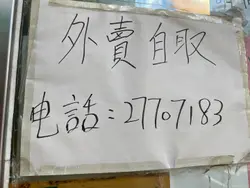 外賣自取
电話：27707183